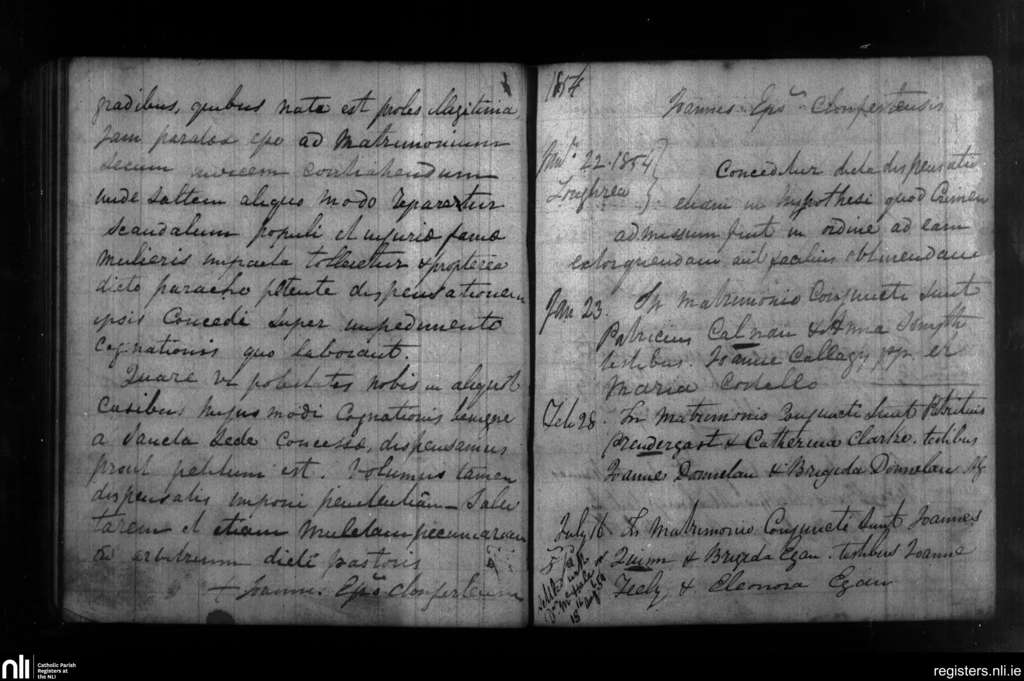 gradibus, quibus nata est proles illegitima,
jam paratos esse ad Matrimonium
secum invicem contrahendum
unde saltem aliquo modo reparetur
scandalum populi et injuria famæ
mulieris impacta tolleretur & propterea
dicto parocho petente dispensationem
ipsis concedi super impedimento
Cognationis quo laborant.
Quare vi potestatis nobis in aliquot
Casibus hujusmodi Cognationis benigne
a Sancta Sede Concessæ, dispensamus
prout petitum est. Volumus tamen
dispensatis imponi penitentiam Salu
tarem et etiam Mulctam pecuniariam
arbitrium dicti pastoris
+ Joannes Eps Clonfertensis
1854
Joannes Eps Clonfertensis
Jan 22. 1854
Loughrea
Conceditur dicta dispensatio
etiam in hypothesi quod Crimen
admissum fuit in ordine ad eam
extorquendam aut facilius obtinendam
Jan 23. In Matrimonio Conjuncti sunt
Patricius Calnan & Anna Smyth
testibus. Joanne Callagy pp. et
Maria Costello
Feb 28. In Matrimonio Conjuncti sunt Patricius
Prendergast & Catherina Clarke. testibus
Joanne Donnelan & Brigida Donnelan
July 16 In Matrimonio Conjuncti sunt Joannes
Quinn & Brigida Egan. testibus Joanne
Feely & Eleonora Egan
nli
Catholic Parish
Registers at
the NLI
registers.nli.ie